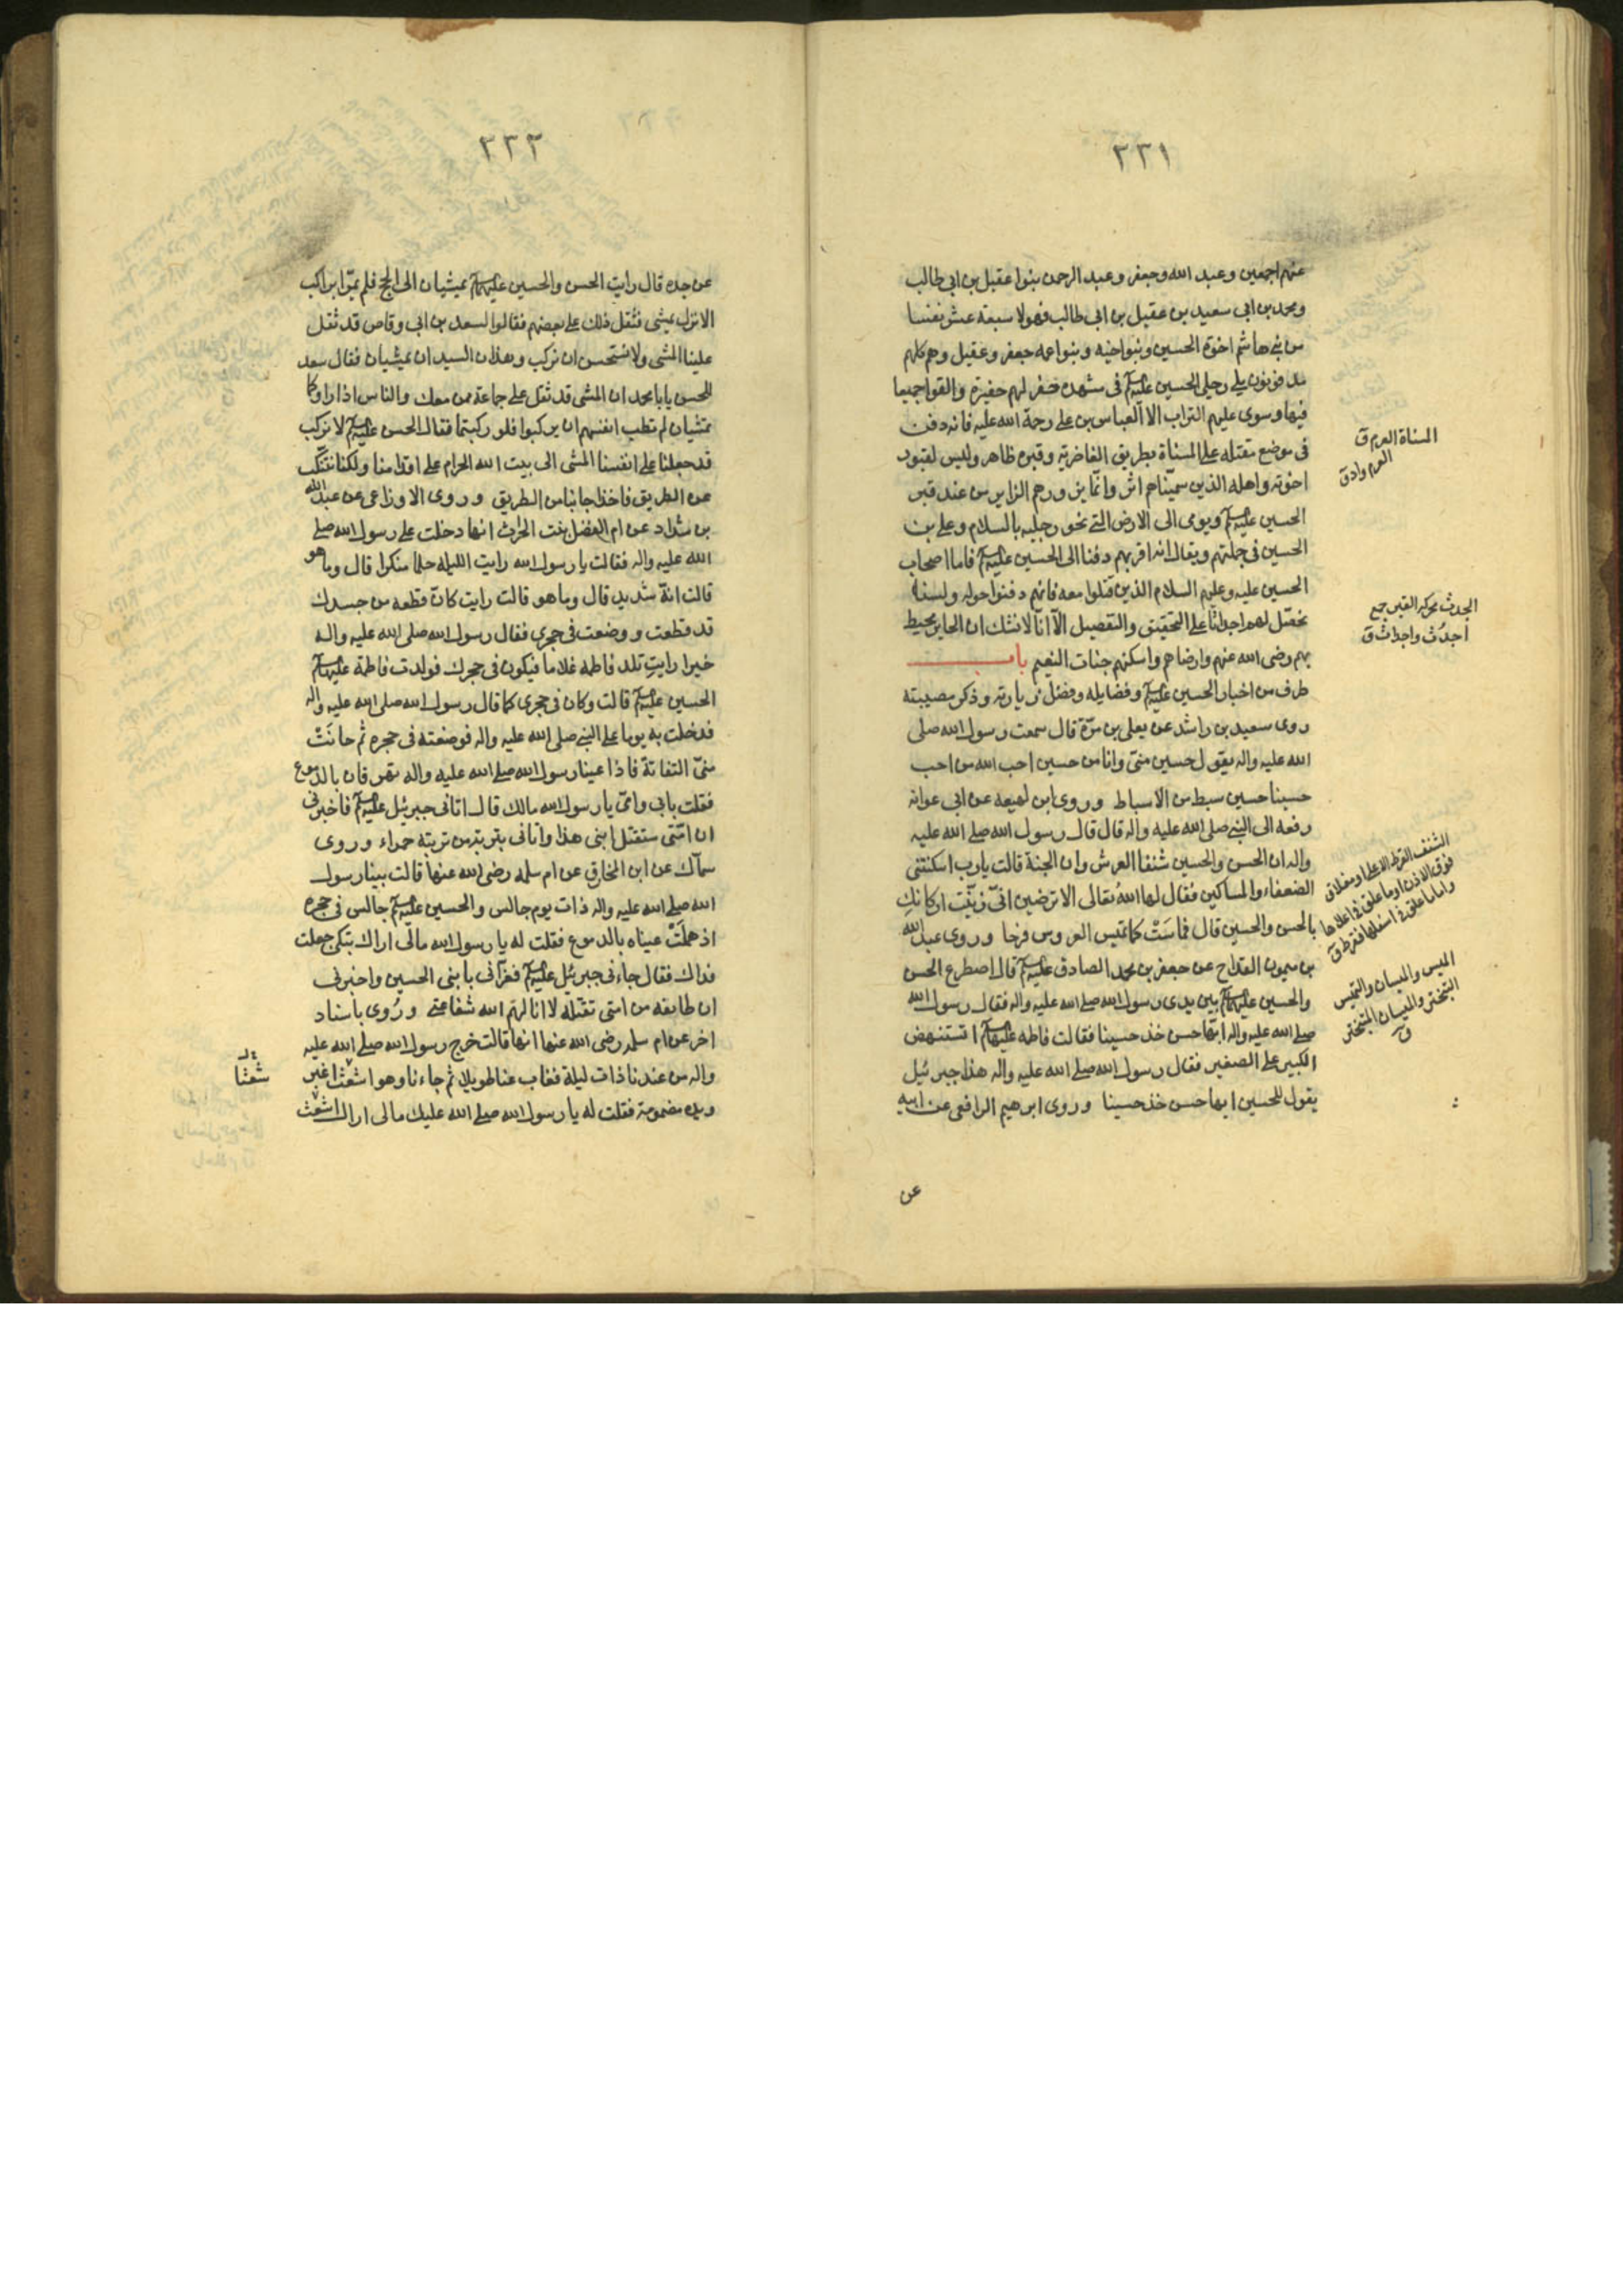 ٢٣١
عنهم اجمعين وعبد الله وجعفر وعبد الرحمن بنوا عقيل بن ابي طالب
ومحمد بن ابي سعيد بن عقيل بن ابي طالب فهولا سبعة عشر نفسا
من بني هاشم اخوة الحسين وبنوا اخيه وبنوا عمه جعفر وعقيل وهم كلهم
مدفونون يلي رجلي الحسين عليه السلم في مشهده حفر لهم حفيرة والقوا جميعا
فيها وسوي عليهم التراب الا العباس بن علي رحمة الله عليه فانه دفن
في موضع مقتله علي المسناة بطريق الغاضرية وقبره ظاهر وليس لقبور
اخوته واهله الذين سميناهم اثر وانما يزورهم الزاير من عند قبر
الحسين عليه السلم ويومي الى الارض التي نحو رجليه بالسلام وعلي بن
الحسين في جملتهم ويقال انه اقربهم دفنا الى الحسين عليه السلم فاما اصحاب
الحسين عليه وعليهم السلام الذين قتلوا معه فانهم دفنوا حوله ولسنا
نحصّل لهم اجداثا على التحقيق والتفصيل الا انا لا نشك ان الحاير محيط
بهم رضى الله عنهم وارضاهم واسكنهم جنات النعيم باب
طرف من اخبار الحسين عليه السلم وفضايله وفضل زيارته وذكر مصيبته
روى سعيد بن راشد عن يعلى بن مرّة قال سمعت رسول الله صلى
الله عليه واله يقول حسين منّي وانا من حسين احب الله من احب
حسينا حسين سبط من الاسباط وروى ابن لهيعه عن ابي عوانه
رفعه الى النبي صلى الله عليه واله قال قال رسول الله صلى الله عليه
واله ان الحسن والحسين شنفا العرش وان الجنة قالت يا رب اسكنتني
الضعفاء والمساكين فقال لها الله تعالى الا ترضين انّي زيّنت اركانكِ
بالحسن والحسين قال فماسَتْ كما تميس العروس فرحا وروى عبد الله
بن ميمون القداح عن جعفر بن محمد الصادق عليه السلم قال اصطرع الحسن
والحسين عليهما السلم بين يدي رسول الله صلى الله عليه واله فقال رسول الله
صلى الله عليه واله ايها حسن خذ حسينا فقالت فاطمه عليها السلم اتستنهض
الكبير على الصغير فقال رسول الله صلى الله عليه واله هذا جبرئيل
يقول للحسين ايها حسن خذ حسينا وروى ابرهيم الرافعي عن ابيه
عن
المسناة العرم ق
الجدث محركه القبر جمع
اجدُث واجداث ق
الشنف القرط الاعلى او معلاق
فوق الاذن او ما علق في اعلاها
واما ما علق في اسفلها فقرط ق
الميس والميسان والتميس
التبختر والميسان المتبختر
ق
٢٣٢
عن جده قال رايت الحسن والحسين عليهما السلم يمشيان الى الحج فلم يمرّا براكب
الا نزل يمشى فثقل ذلك على بعضهم فقالوا لسعد بن ابي وقاص قد ثقل
علينا المشى ولا نستحسن ان نركب وهذان السيدان يمشيان فقال سعد
للحسن يا با محمد ان المشى قد ثقل على جماعة ممن معك والناس اذا راوكما
تمشيان لم تطب انفسهم ان يركبوا فلو ركبتما فقال الحسن عليه السلم لا نركب
قد جعلنا على انفسنا المشى الى بيت الله الحرام على اقدامنا ولكنا نتنكّب
عن الطريق فاخذا جانبا من الطريق وروى الاوزاعى عن عبد الله
بن شداد عن ام الفضل بنت الحرث انها دخلت على رسول الله صلى
الله عليه واله فقالت يا رسول الله رايت الليلة حلما منكرا قال وما هو
قالت انّه شديد قال وما هو قالت رايت كانّ قطعه من جسدك
قد قطعت ووضعت في حجرى فقال رسول الله صلى الله عليه واله
خيرا رايتِ تلد فاطمه غلاما فيكون في حجرك فولدت فاطمة عليها السلم
الحسين عليه السلم قالت وكان في حجرى كما قال رسول الله صلى الله عليه واله
فدخلت به يوما على النبي صلى الله عليه واله فوضعته في حجره ثم حانَتْ
منّى التفاتة فاذا عينا رسول الله صلى الله عليه واله تهرقان بالدموع
فقلت بابي وامّي يا رسول الله مالك قال اتانى جبرئيل عليه السلم فاخبرني
ان امّتى ستقتل ابنى هذا واتانى بتربة من تربته حمراء وروى
سماك عن ابن المخارق عن ام سلمه رضى الله عنها قالت بينا رسول
الله صلى الله عليه واله ذات يوم جالس والحسين عليه السلم جالس في حجره
اذ هملَتْ عيناه بالدموع فقلت له يا رسول الله مالى اراك تبكى جعلت
فداك فقال جاءنى جبرئيل عليه السلم فعزّاني بابنى الحسين واخبرنى
ان طايفه من امتى تقتله لا انالهم الله شفاعتى ورُوى باسناد
اخر عن ام سلمه رضى الله عنها انها قالت خرج رسول الله صلى الله عليه
واله من عندنا ذات ليلة فغاب عنا طويلا ثم جاءنا وهو اشعث اغبر
ويده مضمومة فقلت له يا رسول الله صلى الله عليك مالى اراك اشعث
شعثا